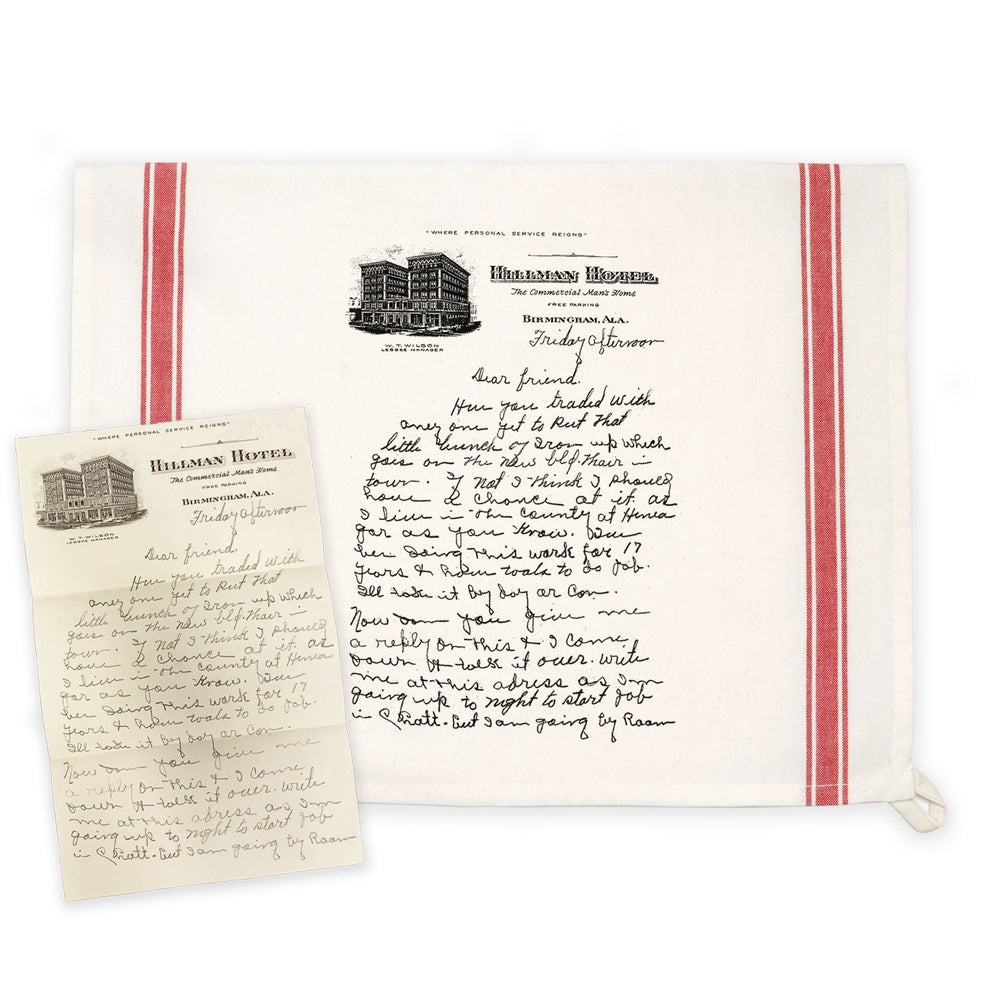 "WHERE PERSONAL SERVICE REIGNS"
HILLMAN HOTEL
The Commercial Man's Home
FREE PARKING
BIRMINGHAM, ALA.
W. T. WILSON
LESSEE MANAGER
Friday afternoon
Dear friend.
you traded with
aney one yet to Put that
little bunch of Iron up which
gois on the new bld. thair in
town. If not I think I should
have a chance at it. as
I live in the county at
far as you know.
ben doing this work for 17
years & have to do Job.
I'll take it by day or Con.
Now you give me
a reply on this & I come
down & it over. write
me at this adress as I'm
going up to night to start Job
in Pratt. but I am going by Raam
"WHERE PERSONAL SERVICE REIGNS"
HILLMAN HOTEL
The Commercial Man's Home
FREE PARKING
BIRMINGHAM, ALA.
W. T. WILSON
LESSEE MANAGER
Friday afternoon
Dear friend.
you traded with
aney one yet to Put that
little bunch of Iron up which
gois on the new bld. thair in
town. If not I think I should
have a chance at it. as
I live in the county at
far as you know.
ben doing this work for 17
years & have to do Job.
I'll take it by day or Con.
Now you give me
a reply on this & I come
down & it over. write
me at this adress as I'm
going up to night to start Job
in Pratt. but I am going by Raam